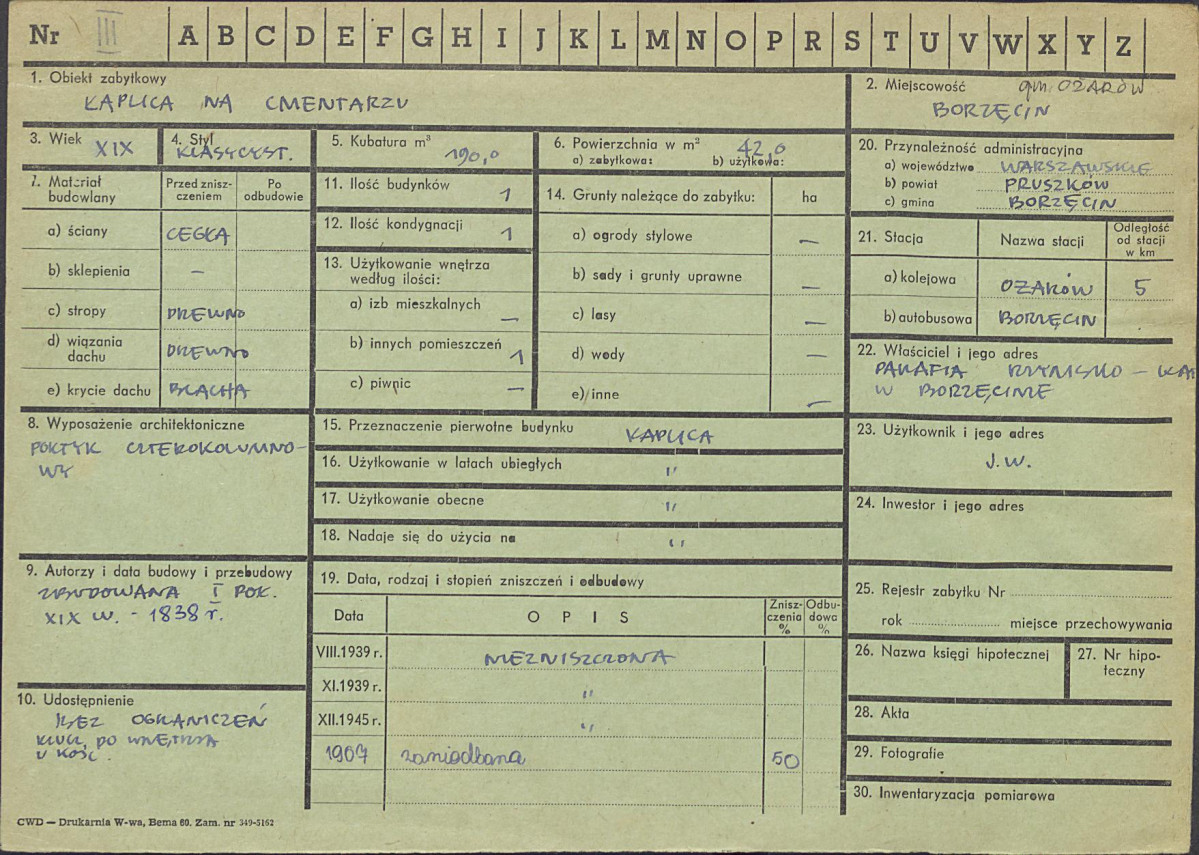 Nr III A B C D E F G H I J K L M N O P R S T U V W X Y Z
1. Obiekt zabytkowy
KAPLICA NA CMENTARZU
2. Miejscowość gm. OŻARÓW
BORZĘCIN
3. Wiek XIX
4. Styl
KLASYCYST.
5. Kubatura m³
190,0
6. Powierzchnia w m² 42,0
a) zabytkowa: b) użytkowa:
7. Materiał budowlany
Przed zniszczeniem
Po odbudowie
a) ściany CEGŁA
b) sklepienia —
c) stropy DREWNO
d) wiązania dachu DREWNO
e) krycie dachu BLACHA
8. Wyposażenie architektoniczne
PORTYK CZTEROKOLUMNO-
WY
9. Autorzy i data budowy i przebudowy
ZBUDOWANA I POŁ.
XIX W. - 1838 r.
10. Udostępnienie
BEZ OGRANICZEŃ
KLUCZ PO WNĘTRZA
U KOŚC.
11. Ilość budynków 1
12. Ilość kondygnacji 1
13. Użytkowanie wnętrza
według ilości:
a) izb mieszkalnych —
b) innych pomieszczeń 1
c) piwnic —
14. Grunty należące do zabytku: ha
a) ogrody stylowe —
b) sady i grunty uprawne —
c) lasy —
d) wody —
e) inne —
15. Przeznaczenie pierwotne budynku KAPLICA
16. Użytkowanie w latach ubiegłych "
17. Użytkowanie obecne "
18. Nadaje się do użycia na "
19. Data, rodzaj i stopień zniszczeń i odbudowy
Data OPIS Zniszczenia % Odbudowa %
VIII.1939 r. NIEZNISZCZONA
XI.1939 r. "
XII.1945 r. "
1967 zaniedbana 50
20. Przynależność administracyjna
a) województwo WARSZAWSKIE
b) powiat PRUSZKÓW
c) gmina BORZĘCIN
21. Stacja Nazwa stacji Odległość od stacji w km
a) kolejowa OŻARÓW 5
b) autobusowa BORZĘCIN
22. Właściciel i jego adres
PARAFIA RZYMSKO - KAT
W BORZĘCINIE
23. Użytkownik i jego adres
J.W.
24. Inwestor i jego adres
25. Rejestr zabytku Nr
rok miejsce przechowywania
26. Nazwa księgi hipotecznej
27. Nr hipoteczny
28. Akta
29. Fotografie
30. Inwentaryzacja pomiarowa
CWD — Drukarnia W-wa, Bema 60. Zam. nr 349-5162